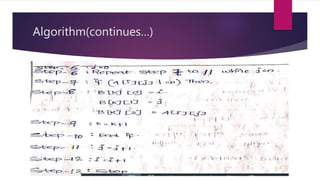 Algorithm(continues...)
Step-6 : Repeat Step 7 to 11 while j<n.
Step-7 : If (A[i][j] != 0) Then,
Step-8 : B[k][0] = i
B[k][1] = j
B[k][2] = A[i][j]
Step-9 : k=k+1
Step-10 : End If.
Step-11 : j=j+1.
Step-12 : i=i+1
Step-13 : Stop